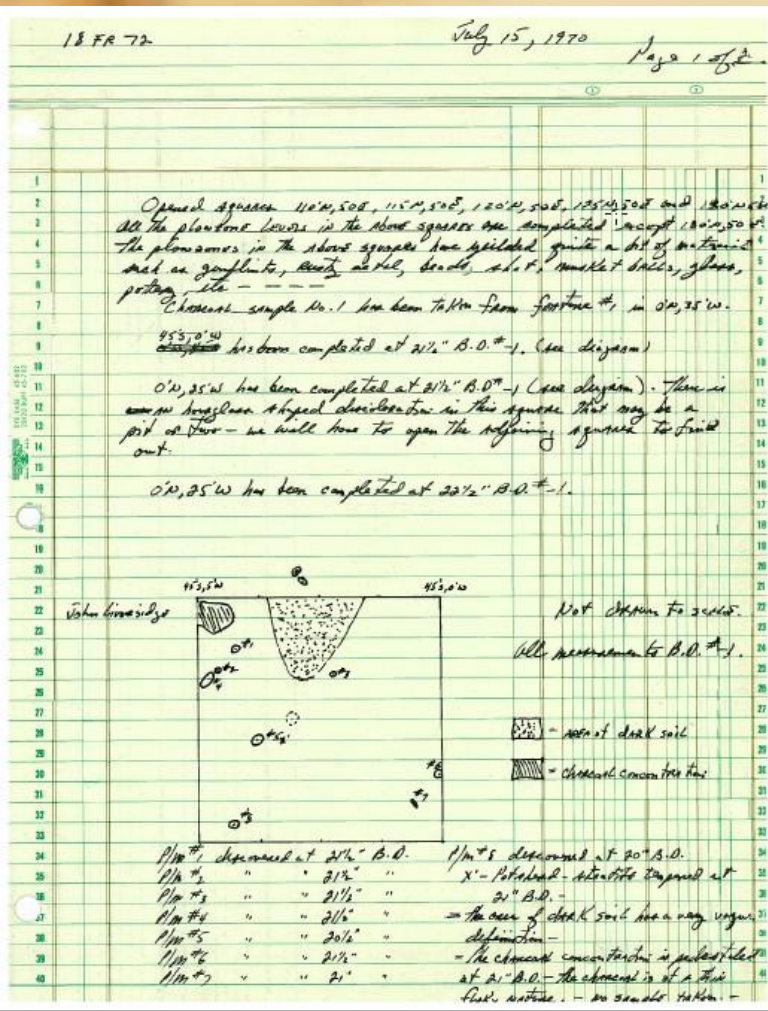 18 FR 72
July 15, 1970
Page 1 of 2.
Opened squares 110'N,50E, 115'N,50E, 120'N,50E, 125N,50E and
All the plowzone Levels in the above squares are completed except 130'N,50E.
The plowzones in the above squares have yeilded quite a bit of material
such as gunflints, rusty metal, beads, shot, musket balls, glass,
pottery, etc - - - - -
Charcoal sample No. 1 has been taken from feature #1 in 0'N,35'W.
45'S,0'W has been completed at 21½" B.D.#-1. (see diagram)
0'N,35'W has been completed at 21½" B.D#-1 (see diagram). There is
an hourglass shaped discoloration in this square that may be a
pit or two - we will have to open the adjoining squares to find
out.
0'N,25'W has been completed at 22½" B.D.#-1.
45'S,5'W
45'S,0'W
John
Not drawn to scale.
All measurements B.D.#-1.
#1
#2
#3
#4
#6
#7
= AREA of dARK soil
= charcoal concentration
P/m #1 discovered at 21½" B.D.
P/m #2 " " 21½" "
P/m #3 " " 21½" "
P/m #4 " " "
P/m #5 " " 20½" "
P/m #6 " " 21½" "
P/m #7 " " 21" "
P/m #8 discovered at 20" B.D.
X - Potshead - steatite tempered at
21" B.D. -
= the area of dARK soil has a very vague
definition -
= The charcoal concentration is pedestaled
at 21" B.D - the charcoal is of a thin
flaky nature. - no sample taken. -